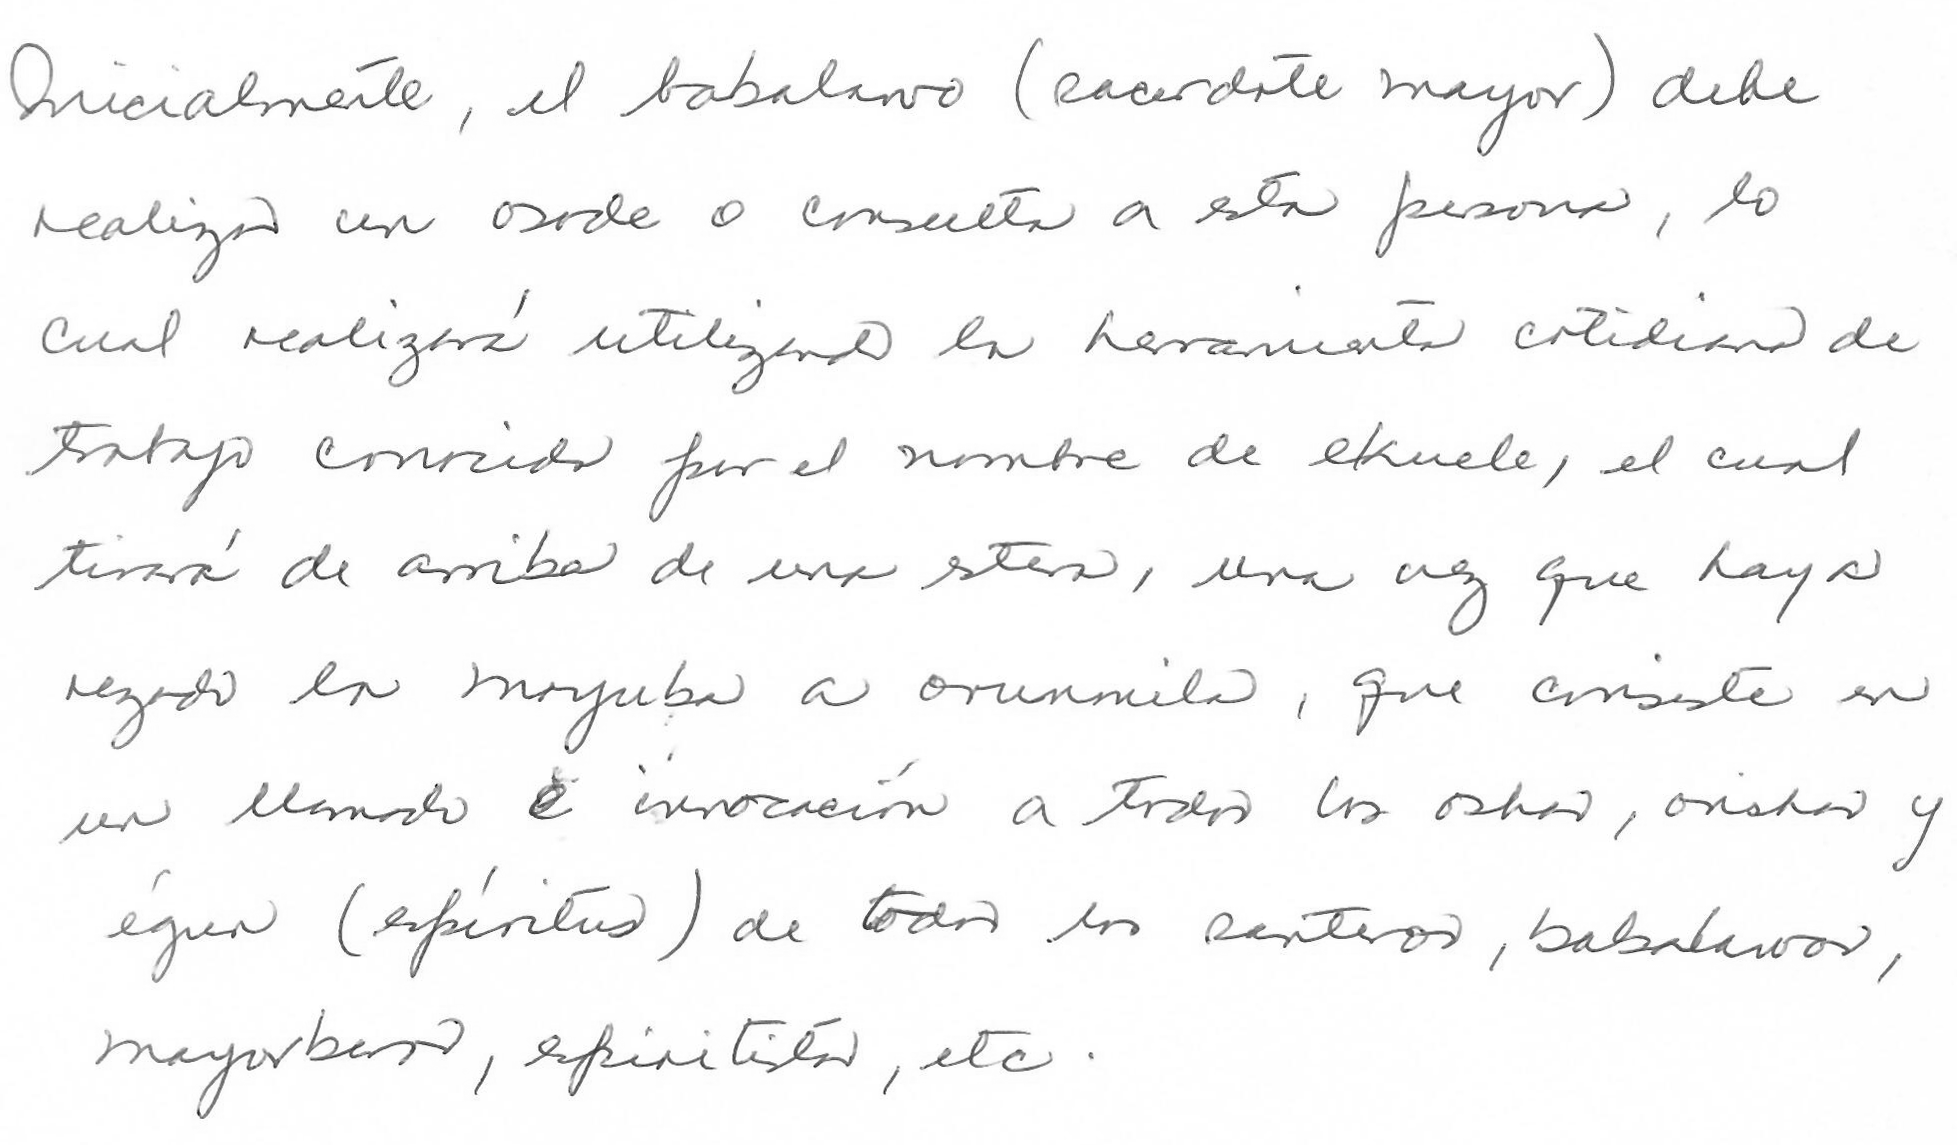 Inicialmente, el babalawo (sacerdote mayor) debe
realizar un osode o consulta a esta persona, lo
cual realizará utilizando la herramienta cotidiana de
trabajo conocida por el nombre de ekuele, el cual
tirará de arriba de una estera, una vez que haya
rezado la moyuba a orunmila, que consiste en
un llamado e invocación a todos los oshas, orishas y
égun (espíritus) de todos los santeros, babalawos,
mayorberos, espiritistas, etc.